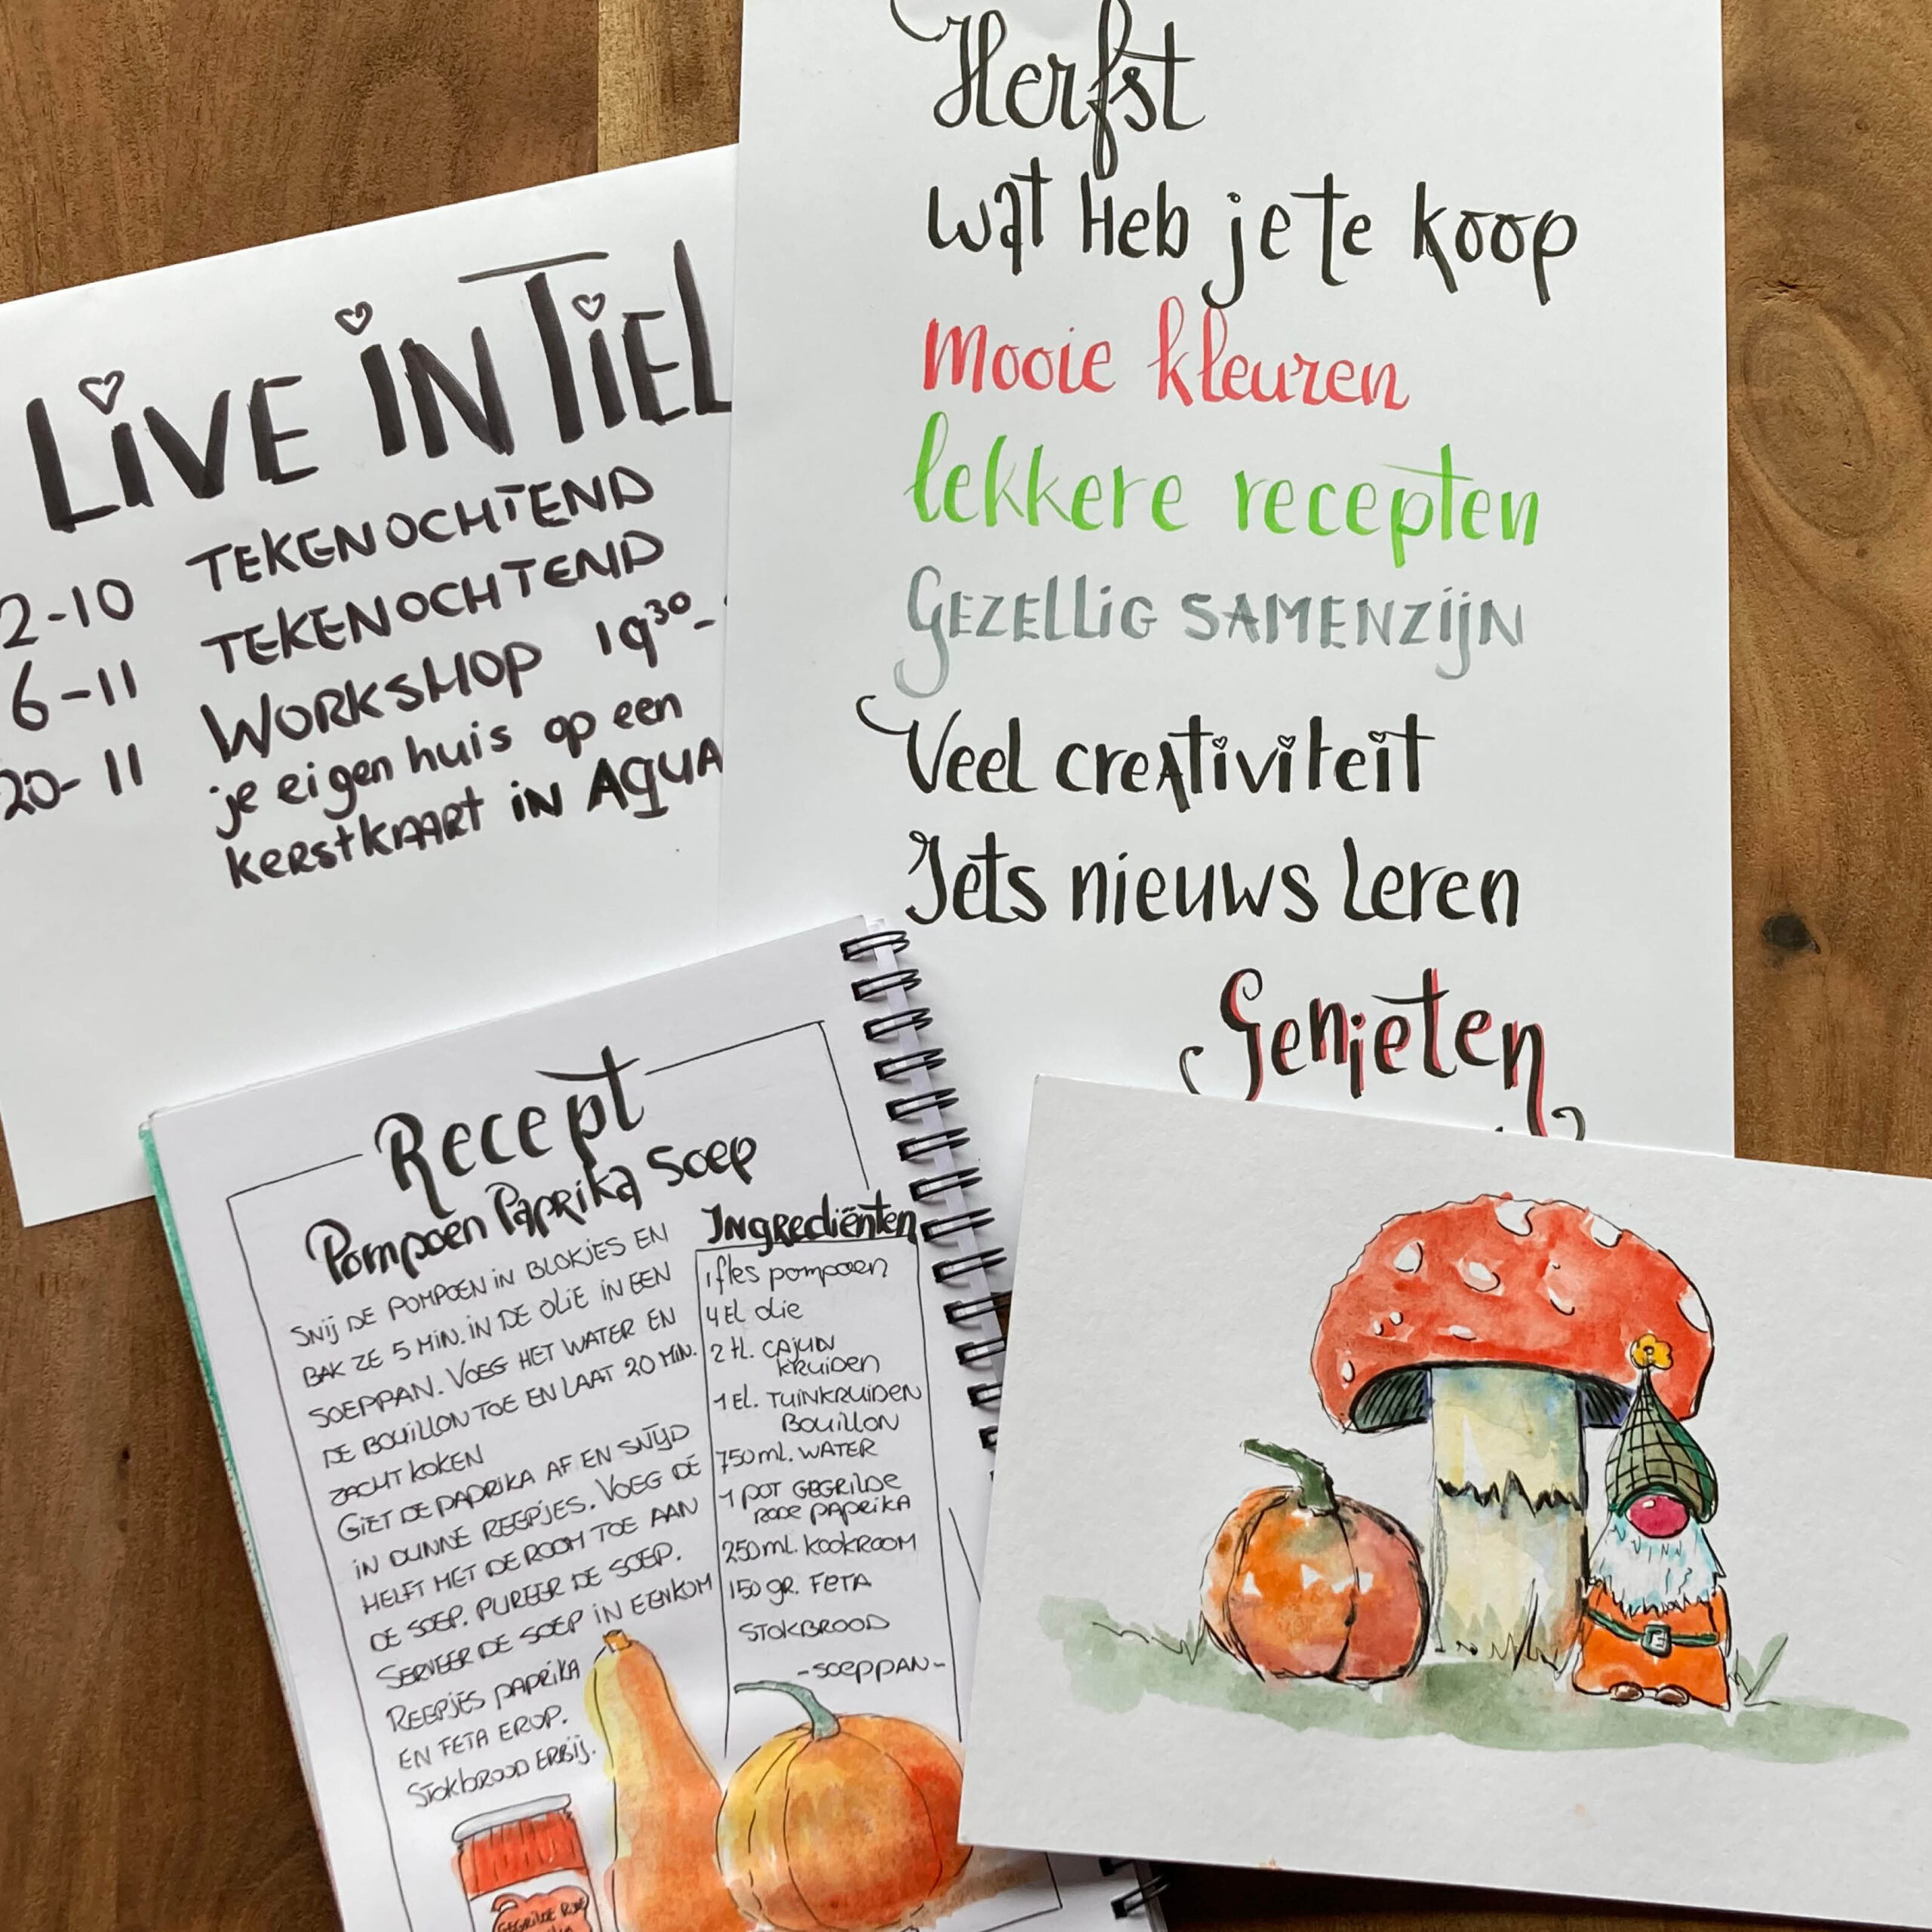 Herfst
wat Heb je te koop
mooie kleuren
lekkere recepten
GEZELLIG SAMENZIJN
Veel creativiteit
Iets nieuws leren
Genieten
LIVE IN TIEL
2-10 TEKENOCHTEND
6-11 TEKENOCHTEND
20-11 WORKSHOP 19³⁰-
je eigen huis op een
kerstkaart in AQUA
Recept
Pompoen Paprika Soep
SNIJ DE POMPOEN IN BLOKJES EN
BAK ZE 5 MIN. IN DE OLIE IN EEN
SOEPPAN. VOEG HET WATER EN
DE BOUILLON TOE EN LAAT 20 MIN.
ZACHT KOKEN
GIET DE PAPRIKA AF EN SNIJD
IN DUNNE REEPJES. VOEG DE
HELFT MET DE ROOM TOE AAN
DE SOEP. PUREER DE SOEP.
SERVEER DE SOEP IN EEN KOM
REEPJES PAPRIKA
EN FETA EROP.
Stokbrood ERBIJ.
Ingrediënten
1 fles pompoen
4 El olie
2 tl. CAJUN
KRUIDEN
1 El. TUINKRUIDEN
BOUILLON
750 ml. WATER
1 POT GEGRILDE
RODE PAPRIKA
250 ml. KOOKROOM
150 GR. FETA
STOKBROOD
-SOEPPAN-
GEGRILDE